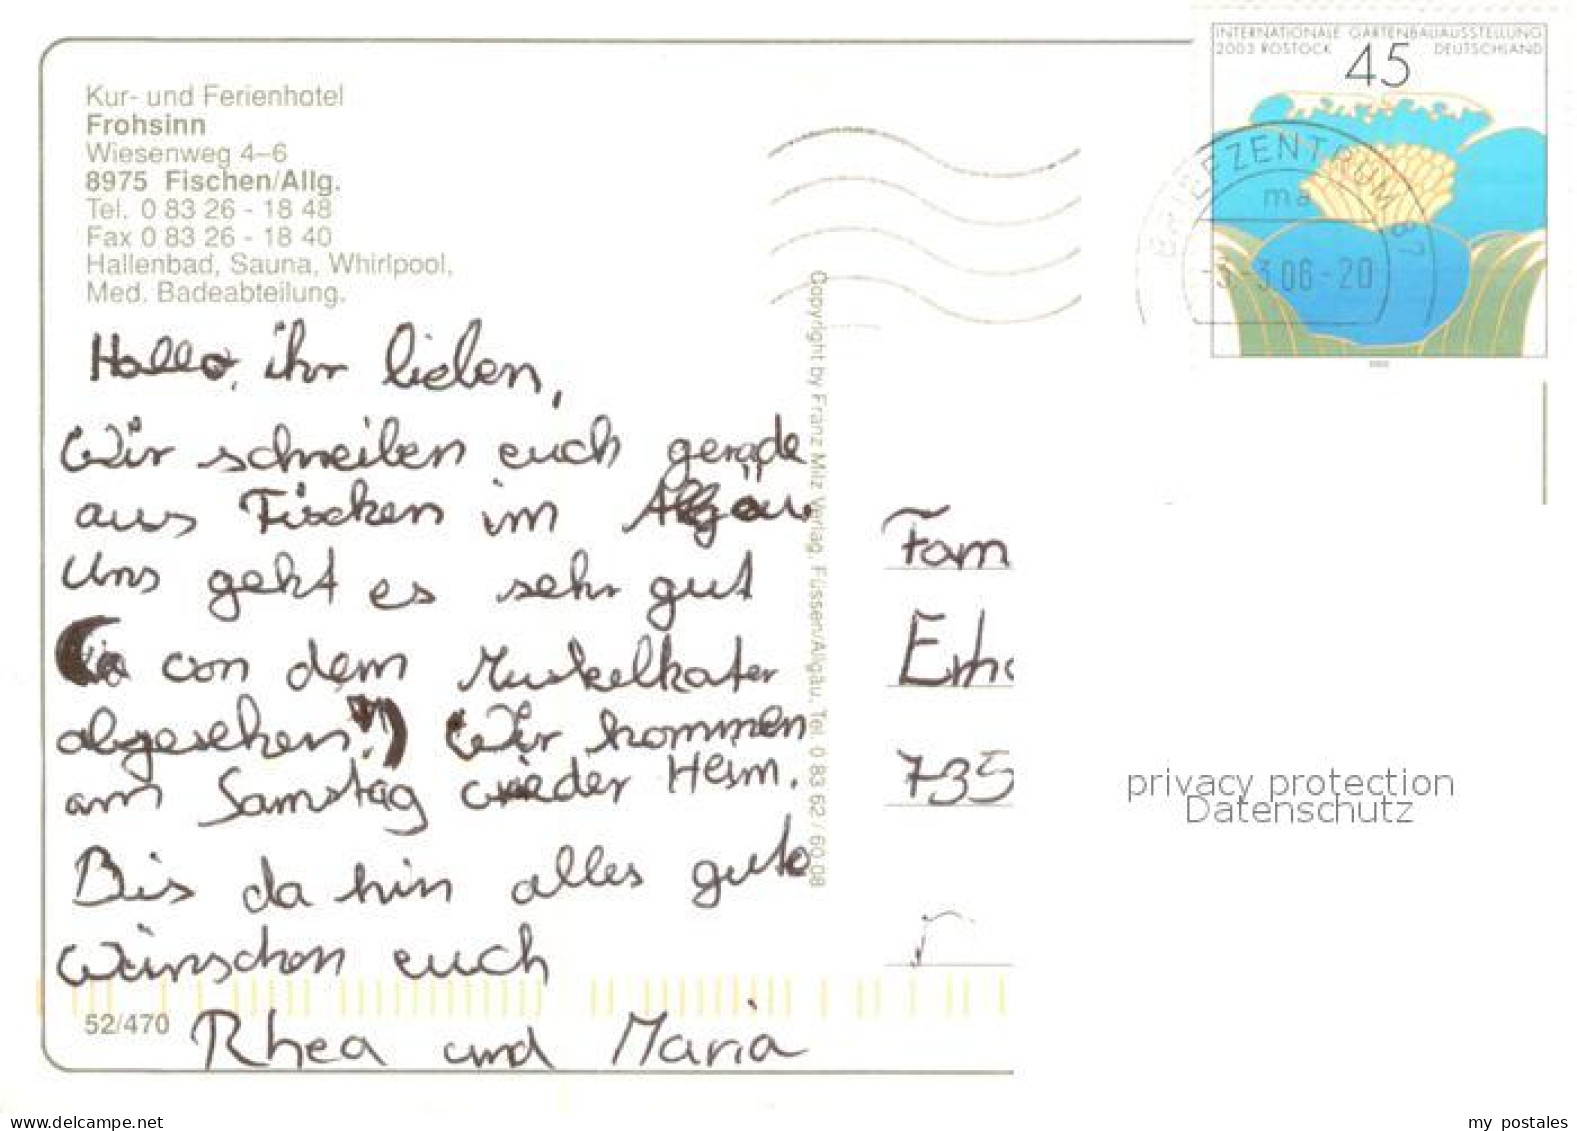 Kur- und Ferienhotel
Frohsinn
Wiesenweg 4–6
8975 Fischen/Allg.
Tel. 0 83 26 - 18 48
Fax 0 83 26 - 18 40
Hallenbad, Sauna, Whirlpool,
Med. Badeabteilung.
Hallo, ihr lieben,
Wir schreiben euch gerade
aus Fischen im Allgäu
Uns geht es sehr gut
von dem Muskelkater
abgesehen!) Wir kommen
am Samstag wieder Heim.
Bis da hin alles gute
wünschen euch
Rhea und Maria
52/470
Copyright by Franz Milz Verlag, Füssen/Allgäu, Tel. 0 83 62 / 60 08
INTERNATIONALE GARTENBAUAUSSTELLUNG
2003 ROSTOCK DEUTSCHLAND
45
BRIEFZENTRUM 87
ma
-3.-3.06-20
Fam
Erh
735
privacy protection
Datenschutz
www.delcampe.net
my_postales